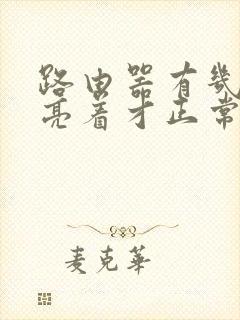 路由器有几
亮着才正常
麦克華